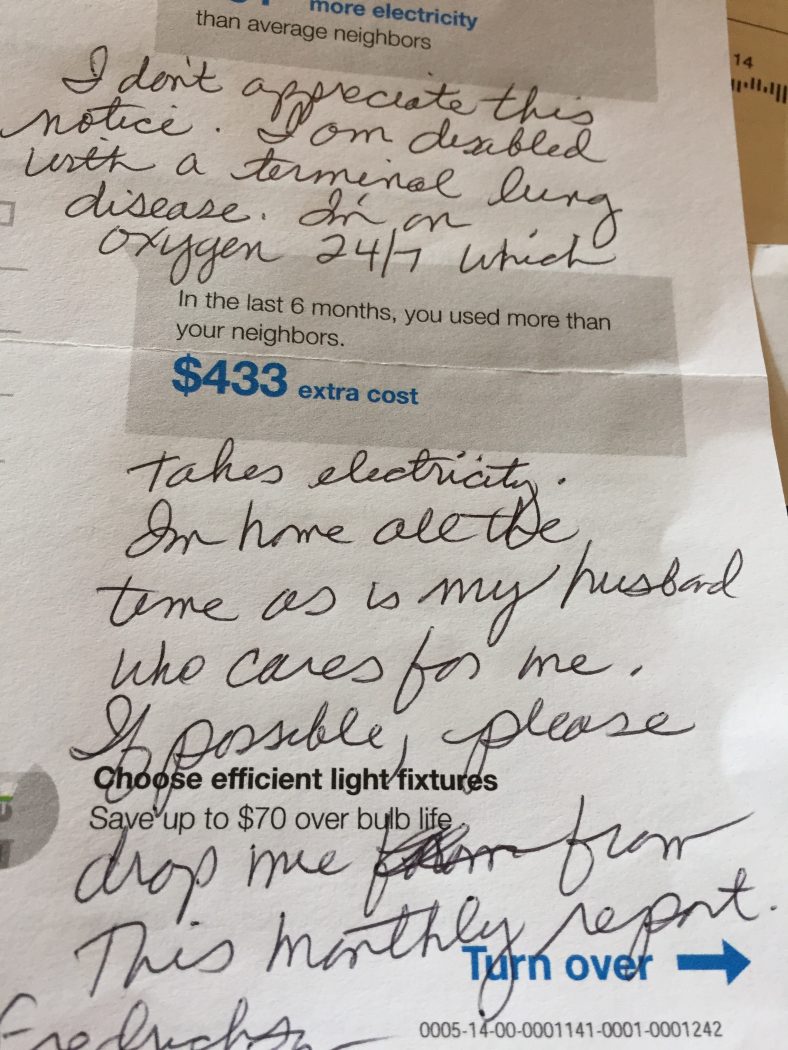 more electricity
than average neighbors
14
I don't appreciate this
notice. I am disabled
with a terminal lung
disease. I'm on
oxygen 24/7 which
In the last 6 months, you used more than
your neighbors.
$433 extra cost
takes electricity.
Im home all the
time as is my husband
who cares for me.
If possible, please
Choose efficient light fixtures
Save up to $70 over bulb life
drop me from
This monthly report.
Turn over
0005-14-00-0001141-0001-0001242